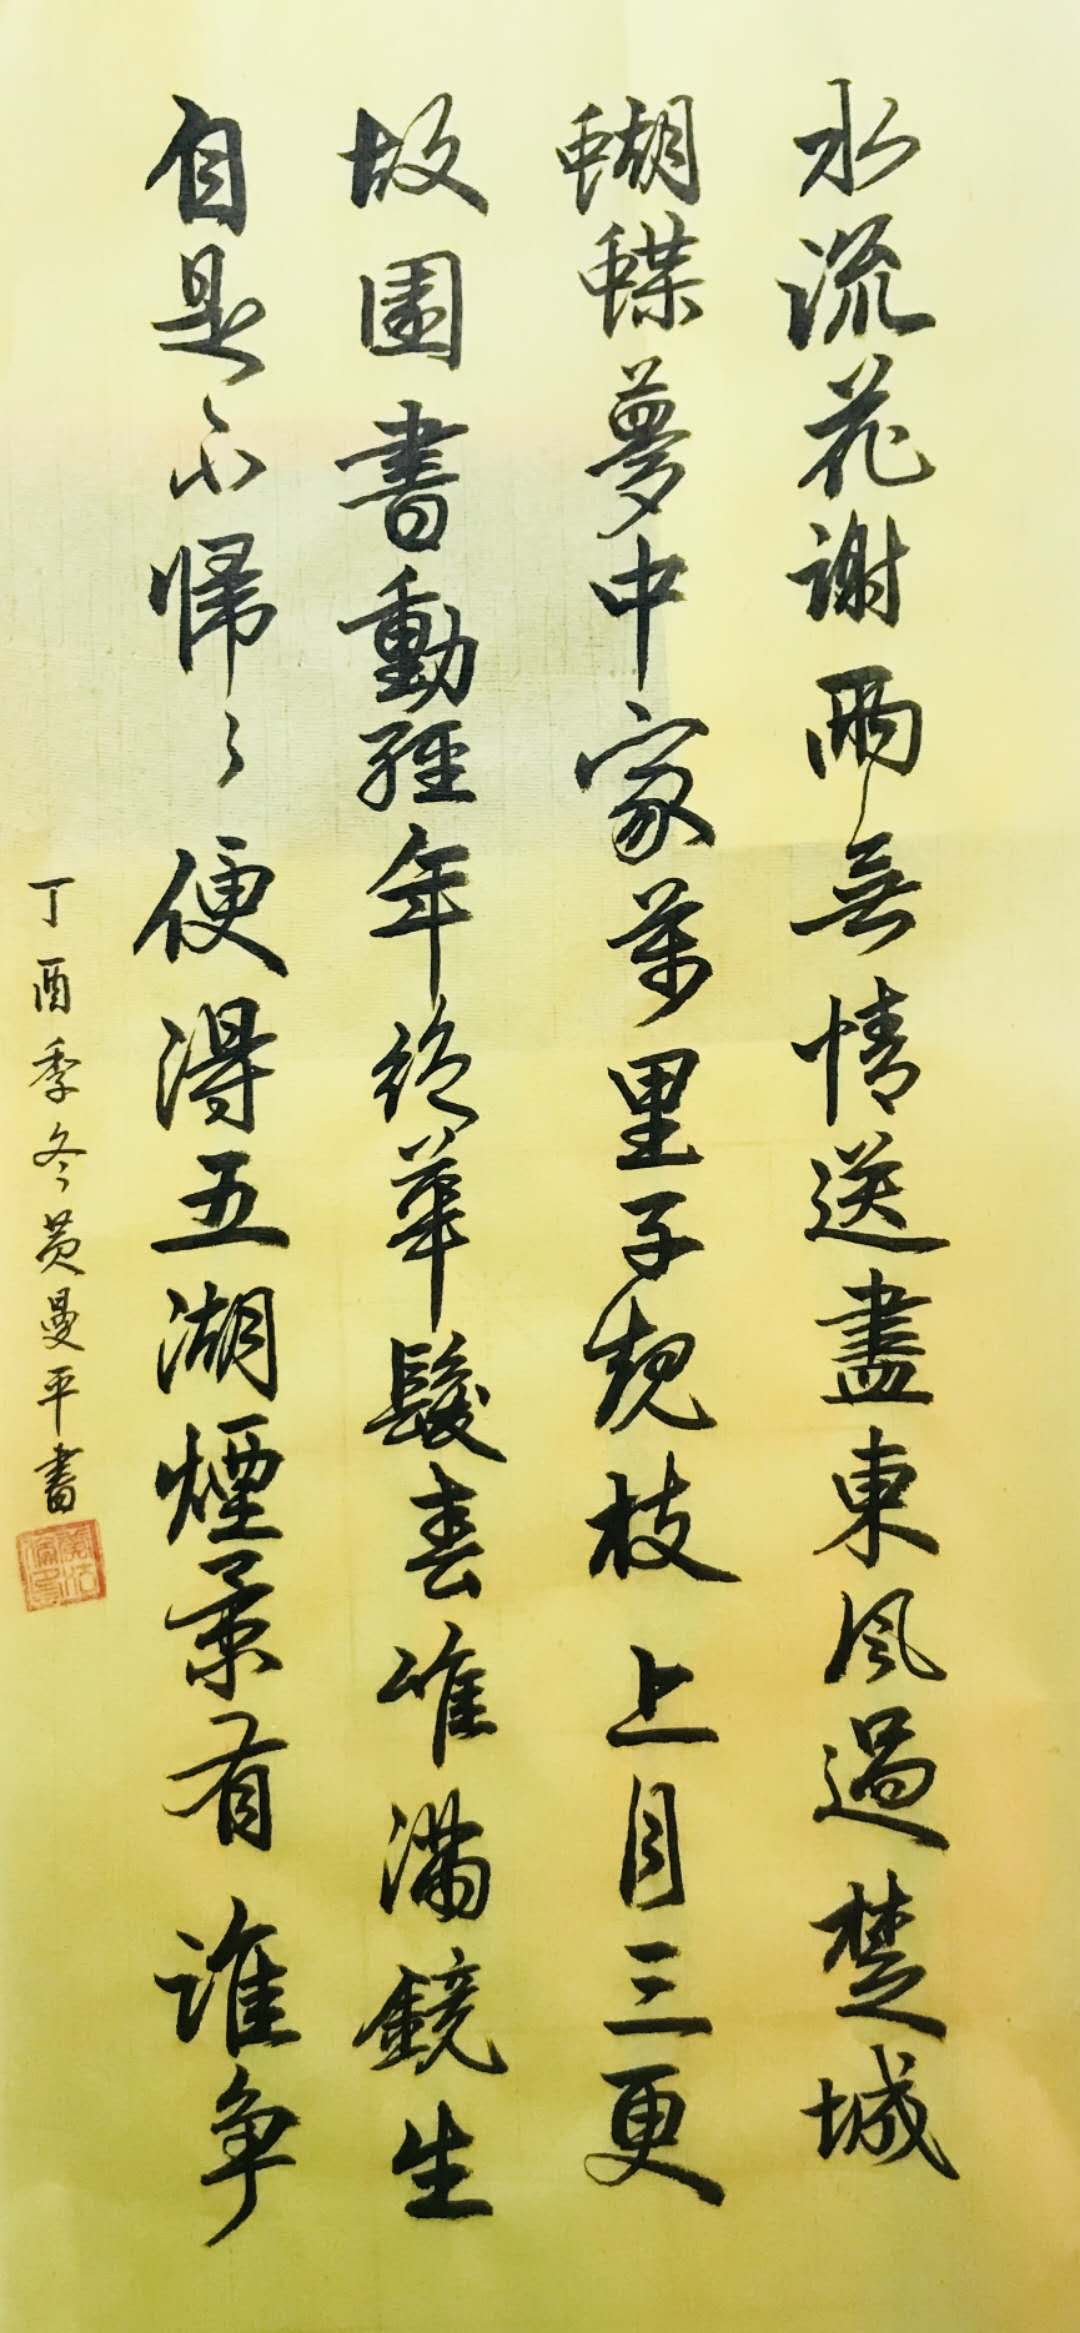 水流花謝兩無情送盡東風過楚城
蝴蝶夢中家萬里子規枝上月三更
故園書動經年絕華髮春唯滿鏡生
自是不歸々便得五湖煙景有誰争
丁酉季冬黄曼平書